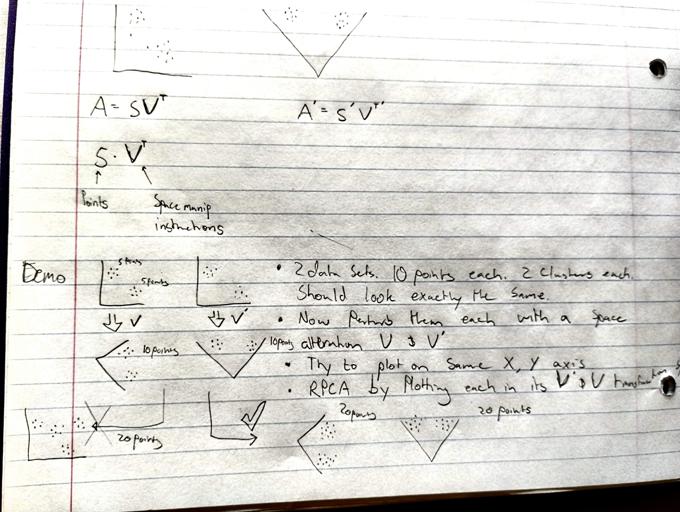 A = SVᵀ
A' = S'Vᵀ'
S · Vᵀ
Points
Space manip
instructions
Demo
5 points
5 points
• 2 data sets. 10 points each. 2 clusters each.
Should look exactly the same.
V
V'
• Now Perturb them each with a space
10 points
10 points
alteration V & V'
• Try to plot on same X, Y axis
• RPCA by Plotting each in its V' & V transformation
20 points
20 points
20 points